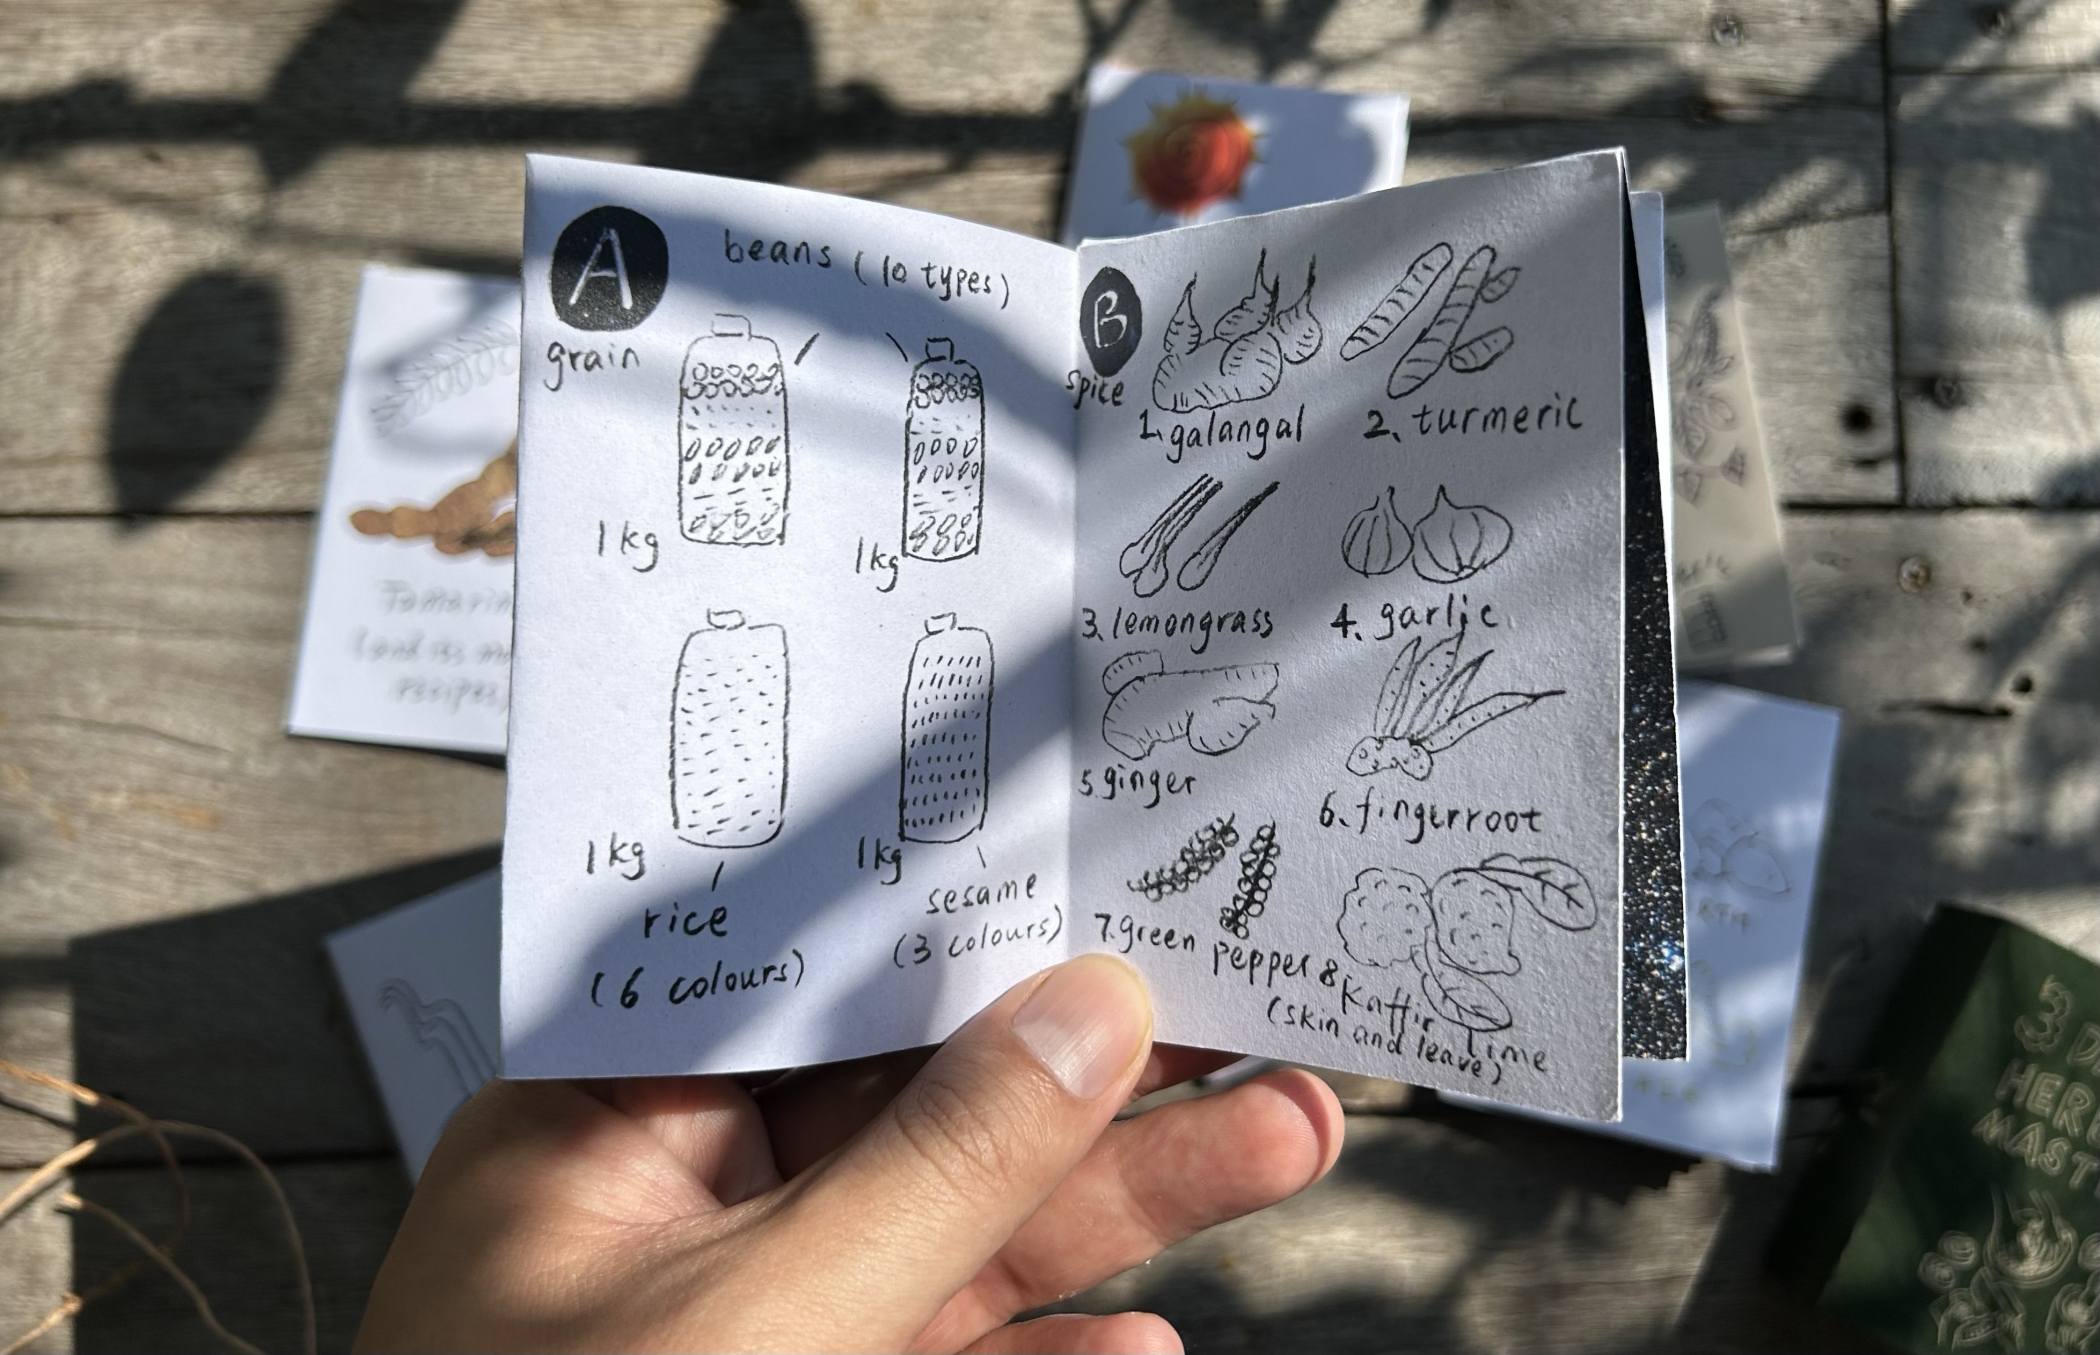 A
grain
beans (10 types)
1kg
1kg
1kg
1kg
rice
(6 colours)
sesame
(3 colours)
B
spice
1. galangal
2. turmeric
3. lemongrass
4. garlic
5. ginger
6. fingerroot
7. green pepper & Kaffir lime
(skin and leave)
3
HER
MAST